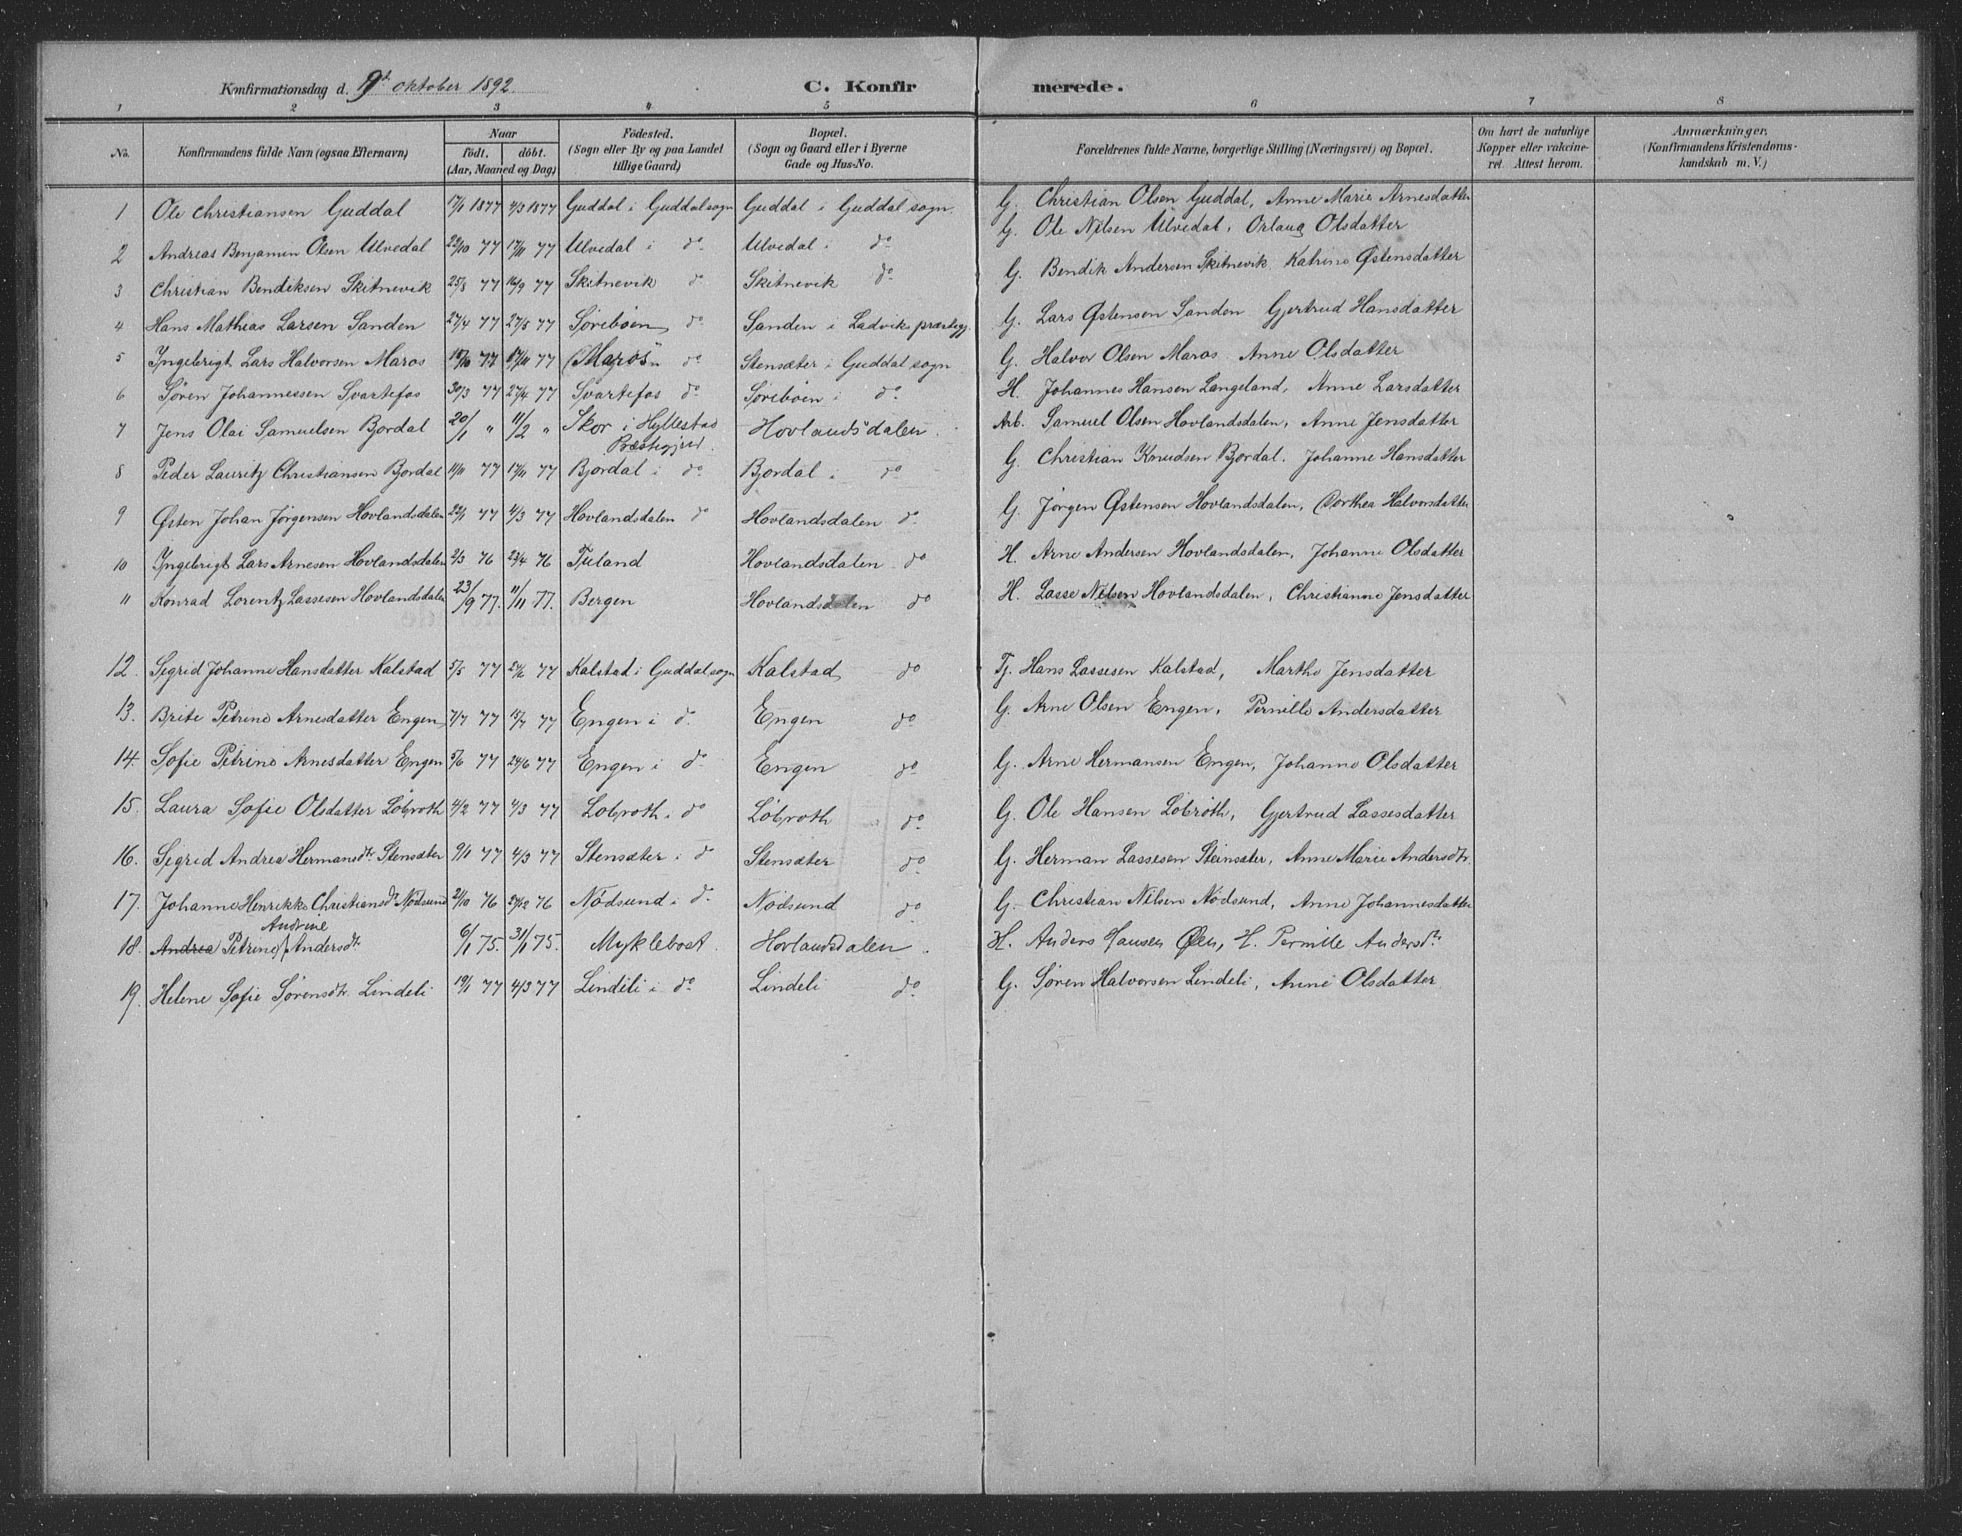 Konfirmationsdag d. 9d. oktober 1892. C. Konfirmerede.
1 2 3 4 5 6 7 8
No. Konfirmandens fulde Navn (ogsaa Efternavn) Naar födt. döbt. (Aar, Maaned og Dag) Födested. (Sogn eller By og paa Landet tillige Gaard) Bopæl. (Sogn og Gaard eller i Byerne Gade og Hus-No. Forældrenes fulde Navne, borgerlige Stilling (Næringsvei) og Bopæl. Om havt de naturlige Kopper eller vakcineret. Attest herom. Anmærkninger. (Konfirmandens Kristendomskundskab m. V.)
1 Ole Christiansen Guddal 17/1 1877 4/3 1877 Guddal i Guddal sogn Guddal i Guddal sogn. G. Christian Olsen Guddal, Anne Marie Arnesdatter
2 Andreas Benjamin Olsen Ulvedal 22/10 77 17/11 77 Ulvedal i do Ulvedal i do G. Ole Nilsen Ulvedal, Orlaug Olsdatter
3 Christian Bendiksen Skitnevik 25/8 77 16/9 77 Skitnevik do Skitnevik do G. Bendik Andersen Skitnevik Katrine Østensdatter
4 Hans Mathias Larsen Sanden 27/4 77 27/5 77 Søreböen do Sanden i Ladviks præstegj. G. Lars Østensen Sanden Gjertrud Hansdatter
5 Ingebrigt Lars Halvorsen Maros 77 77 Marös do Stensæter i Guddal sogn G. Halvor Olsen Maros Anne Olsdatter
6 Søren Johannessen Svartefos 30/3 77 27/4 77 Svartefos do Søreböen i do H. Johannes Hansen Langeland, Anne Larsdatter
7 Jens Olai Samuelsen Bjordal 20/1 " 11/2 " Skor i Hyllestad Præstegjeld. Hovlandsdalen. Arb. Samuel Olsen Hovlandsdalen, Anne Jensdatter
8 Peder Lauritz Christiansen Bjordal 77 77 Bjordal i do Bjordal i do G. Christian Knudsen Bjordal. Johanne Hansdatter
9 Østen Johan Jørgensen Hovlandsdalen 22/1 77 4/3 77 Hovlandsdalen do Hovlandsdalen do G. Jørgen Østensen Hovlandsdalen, Dorthea Halvorsdatter
10 Ingebrigt Lars Arnesen Hovlandsdalen 2/3 76 23/4 76 Tuland Hovlandsdalen do H. Arne Andersen Hovlandsdalen, Johanne Olsdatter
11 Konrad Lorentz Lassesen Hovlandsdalen 23/9 77. 11/11 77. Bergen Hovlandsdalen do H. Lasse Nilsen Hovlandsdalen, Christianne Jensdatter
12. Sigrid Johanne Hansdatter Kalstad 5/5 77 24/6 77 Kalstad i Guddal sogn Kalstad do Tj. Hans Lassesen Kalstad, Marthe Jensdatter
13. Brite Petrine Arnesdatter Engen 7/7 77 15/7 77 Engen i do Engen do G. Arne Olsen Engen, Pernille Andersdatter
14. Sofie Petrine Arnesdatter Engen 5/6 77 24/6 77 Engen i do Engen do G. Arne Hermansen Engen, Johanne Olsdatter
15. Laura Sofie Olsdatter Löbroth 4/2 77 4/3 77 Lobroth i do Löbroth do G. Ole Hansen Löbröth, Gjertrud Lassesdatter
16. Sigrid Andrea Hermansdtr Stensæter 9/1 77 4/3 77 Stensæter i do Stensæter do G. Herman Lassesen Steinsæter, Anne Marie Andersdtr.
17. Johanne Henrikke Christiansdr Nödsund 21/10 76 26/12 76 Nödsund i do Nödsund do G. Christian Nilsen Nödsund, Anne Johannesdatter
Andrine
18. Andrea Petrine Andersdtr 6/1 75. 31/1 75. Myklebost. Hovlandsdalen. H. Anders Hansen Øen, H. Pernille Andersdtr
19. Helene Sofie Sørensdtr. Lindeli 19/1 77 4/3 77 Lindeli i do Lindeli do G. Søren Halvorsen Lindeli, Anne Olsdatter